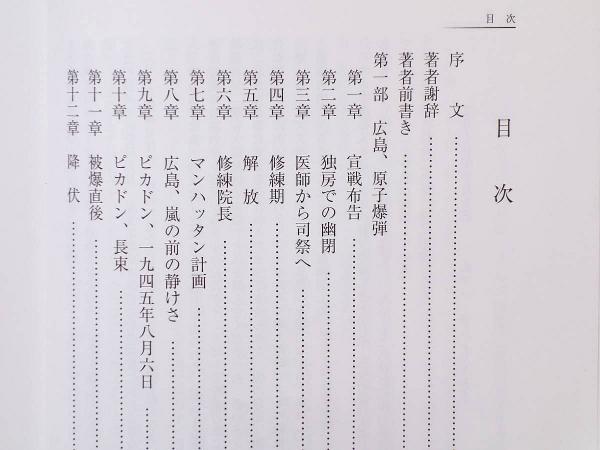 目 次
目 次
序 文
著者謝辞
著者前書き
第一部 広島、原子爆弾
第一章 宣戦布告
第二章 独房での幽閉
第三章 医師から司祭へ
第四章 修練期
第五章 解 放
第六章 修練院長
第七章 マンハッタン計画
第八章 広島、嵐の前の静けさ
第九章 ピカドン、一九四五年八月六日
第十章 ピカドン、長束
第十一章 被爆直後
第十二章 降 伏